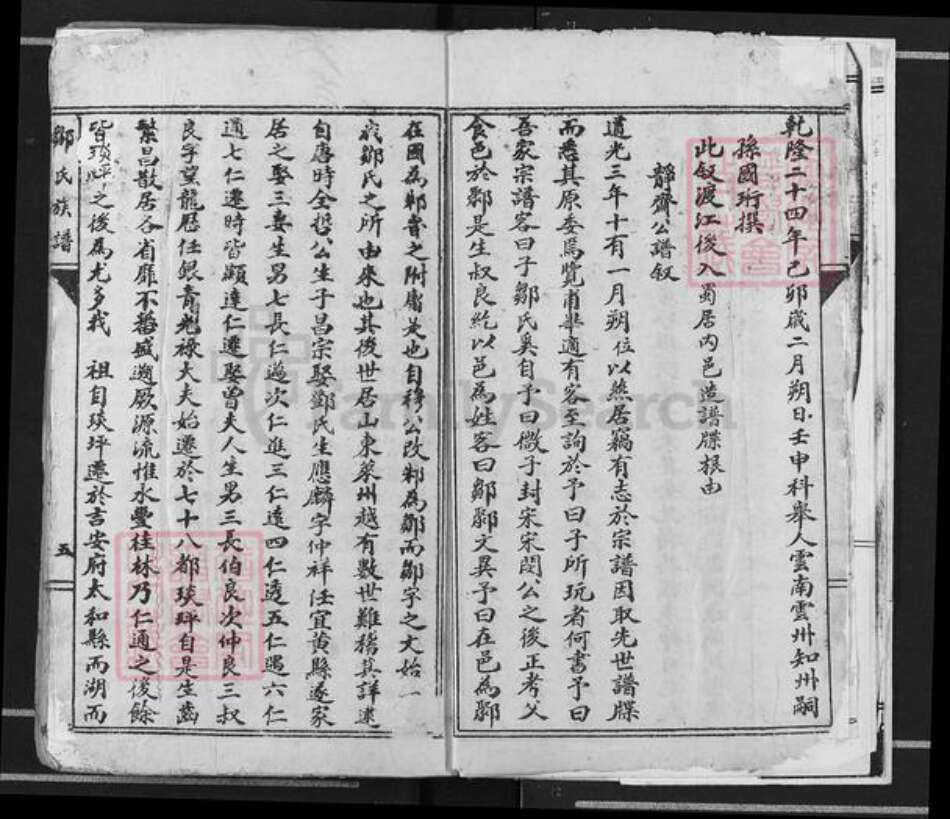 乾隆二十四年己卯歲二月朔日壬申科舉人雲南雲州知州嗣
孫國珩撰
此叙渡江後入蜀居內邑造譜牒根由
靜齋公譜叙
道光三年十有一月朔位以燕居竊有志於宗譜因取先世譜牒
而悉其原委焉覽甫畢適有客至詢於予曰子所玩者何書予曰
吾家宗譜客曰子鄒氏奚自予曰微子封宋宋閔公之後正考父
食邑於鄹是生叔良紇以邑為姓客曰鄒鄹文異予曰在邑為鄹
在國為邾魯之附庸是也自穆公改邾為鄒而鄒字之文始一
我鄒氏之所由來也其後世居山東萊州越有數世難稽其詳逮
自唐時全哲公生子昌宗娶鄧氏生應麟字仲祥任宜黃縣遂家
居之娶三妻生男七長仁邁次仁進三仁遠四仁透五仁遇六仁
通七仁遷時皆顯達仁遷娶曾夫人生男三長伯良次仲良三叔
良字望龍歷任銀青光祿大夫始遷於七十八都琰坪自是生齒
繁昌散居各省靡不蕃盛遡厥源流惟水豐桂林乃仁通之後餘
皆琰坪之後為尤多我 祖自琰坪遷於吉安府太和縣而湖而
鄒氏族譜
五
FamilySearch